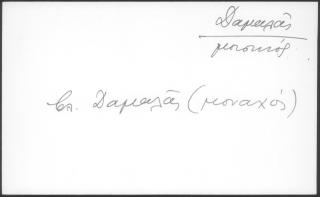 Δαμαλᾶς
μοναχός.
βλ. Δαμαλᾶς (μοναχός)